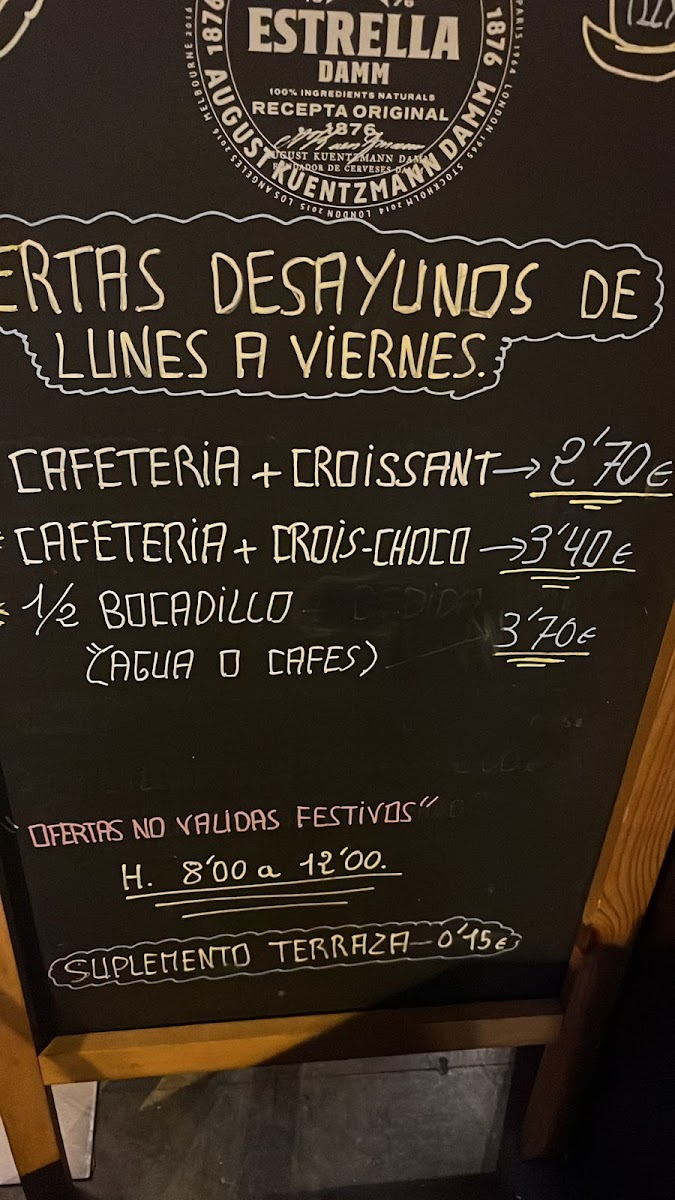 1876
ESTRELLA
DAMM
100% INGREDIENTS NATURALS
RECEPTA ORIGINAL
1876
AUGUST KUENTZMANN DAMM
FUNDADOR DE CERVESES DAMM
1876 AUGUST KUENTZMANN DAMM 1876
MELBOURNE 2016 LOS ANGELES 2016 LOS 2015 LONDON 2014 STOCKHOLM LONDON 1965 PARIS 1964
ERTAS DESAYUNOS DE
LUNES A VIERNES.
CAFETERIA + CROISSANT→ 2'70€
CAFETERIA + CROIS-CHOCO →3'40€
1/2 BOCADILLO
(AGUA O CAFES) 3'70€
"OFERTAS NO VALIDAS FESTIVOS"
H. 8'00 a 12'00.
SUPLEMENTO TERRAZA—0'15€